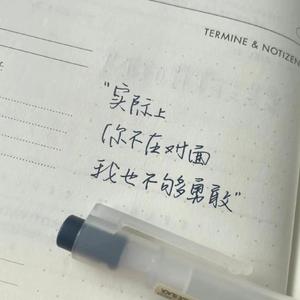 TERMINE & NOTIZEN
“实际上
你不在对面
我也不够勇敢”